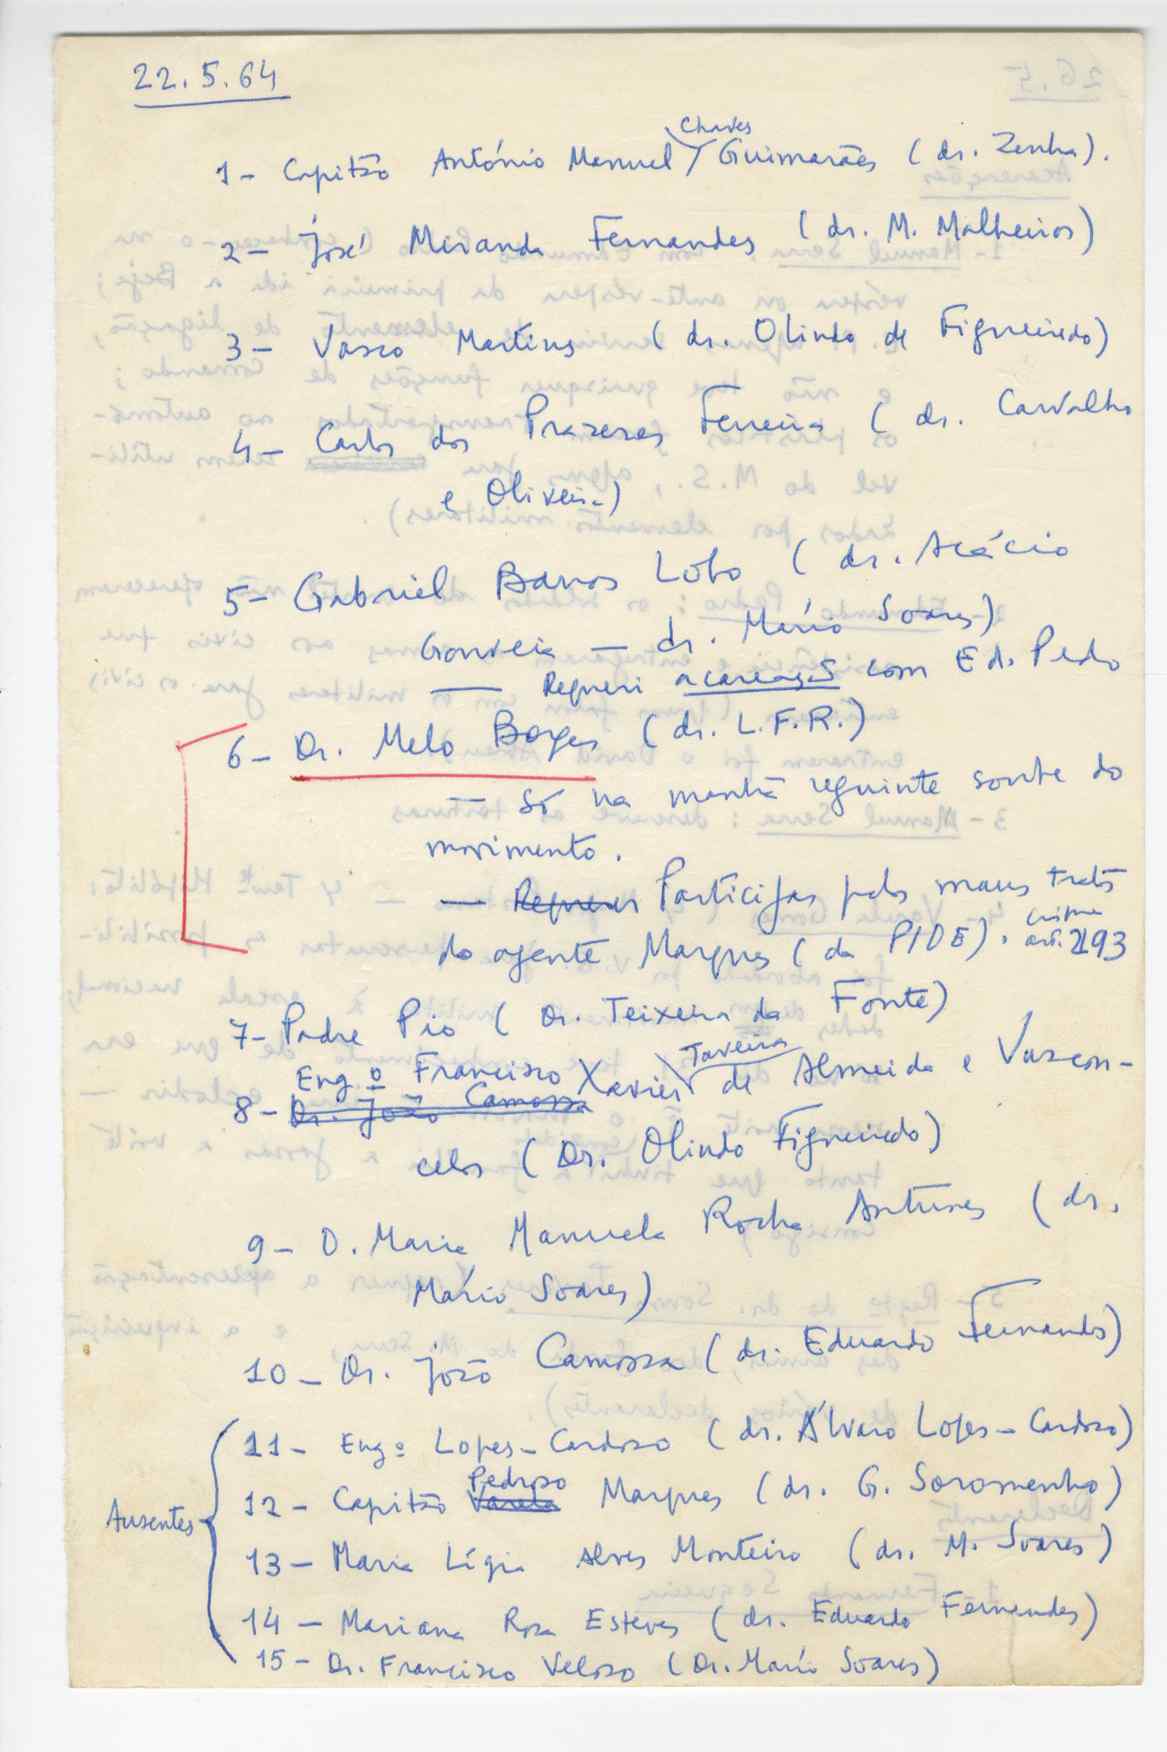 22.5.64
1 - Capitão António Manuel Chaves Guimarães (dr. Zenha).
2 - José Miranda Fernandes (dr. M. Malheiros)
3 - Vasco Martins (dr. Olindo de Figueiredo)
4 - Carlos dos Prazeres Ferreira (dr. Carvalho
e Oliveira)
5 - Gabriel Barros Lobo (dr. Acácio
Gouveia — dr. Mário Soares)
— Requeri acareações com Ed. Pedro
6 - Dr. Melo Borges (dr. L.F.R.)
— Só na manhã seguinte soube do
movimento.
— Requerer Participas pelos maus tratos
do agente Marques (da PIDE). crime art. 293
7 - Padre Pio (Dr. Teixeira da Fonte)
8 - Dr. João Camossa Engº Francisco Xavier Taveira de Almeida e Vascon-
celos (Dr. Olindo Figueiredo)
9 - D. Maria Manuela Rocha Antunes (dr.
Mário Soares)
10 - Dr. João Camossa (dr. Eduardo Fernandes)
Ausentes
11 - Engº Lopes-Cardoso (dr. Álvaro Lopes-Cardoso)
12 - Capitão Varela Pedroso Marques (dr. G. Soromenho)
13 - Maria Lígia Alves Monteiro (dr. M. Soares)
14 - Mariana Rosa Esteves (dr. Eduardo Fernandes)
15 - Dr. Francisco Veloso (Dr. Mário Soares)